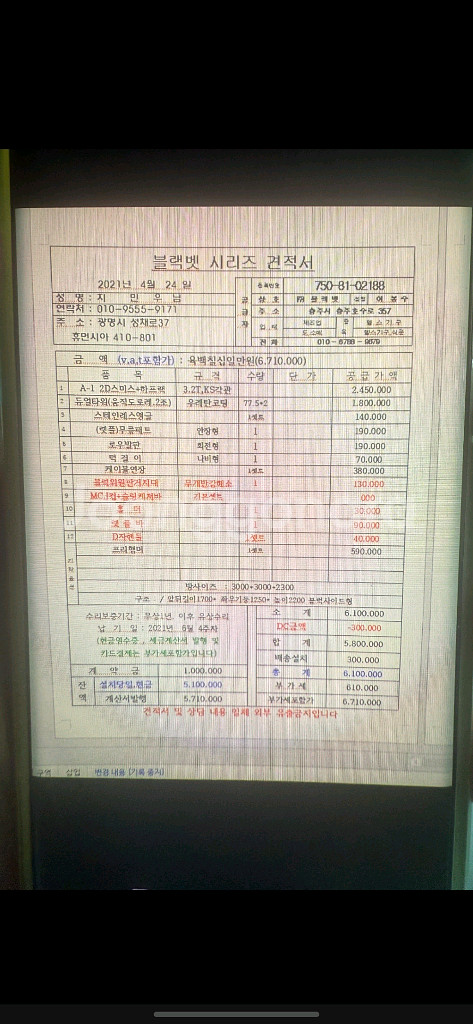 블랙벳 시리즈 견적서
2021년 4월 24 일
등록번호 750-81-02188
성 명 : 지 민 우 님
상 호 블랙벳 성명 이 봉 수
연락처 : 010-9555-9171
주 소 충주시 충주호수로 357
주 소 : 광명시 성채로37
업 태 제조업 종 헬 스 기 구
도.소매 목 헬스기구,식품
휴먼시아 410-801
전 화 010-6788-9679
금 액 (v,a,t포함가) : 육백칠십일만원(6.710.000)
품 목 규 격 수량 단 가 공 급 가 액
1 A-1 2D스미스+하프랙 3.2T,KS각관 2.450.000
2 듀얼타워(움직도르래,2조) 우레탄코팅 77.5*2 1.800.000
3 스테인레스앵글 1셋트 140.000
4 (랫풀)무릎패드 안장형 1 190.000
5 로우발판 회전형 1 190.000
6 턱 걸 이 나비형 1 70.000
7 케이블연장 1셋트 380.000
8 블랙원판거치대 무게반감해소 1 130.000
9 기본셋트 000
10 홀 더 1 30.000
11 랫 풀 바 1 90.000
12 D자핸들 1셋트 40.000
프리햄머 1셋트 590.000
방사이즈 : 3000*3000*2300
구조 : / 앞뒤길이1700* 좌우기둥1250* 높이2200 블럭사이드형
수리보증기간 : 무상1년, 이후 유상수리
소 계 6.100.000
납 기 일 : 2021년 6월 4주차
DC금액 -300.000
(현금영수증 , 세금계산서 발행 및
합 계 5.800.000
카드결제는 부가세포함가입니다)
배송설치 300.000
계 약 금 1.000.000
총 계 6.100.000
잔 설치당일,현금 5.100.000
부 가 세 610.000
액 계산서발행 5.710.000
부가세포함가 6.710.000
견적서 및 상담 내용 일체 외부 유출금지입니다
구역 삽입 변경 내용 [기록 중지]